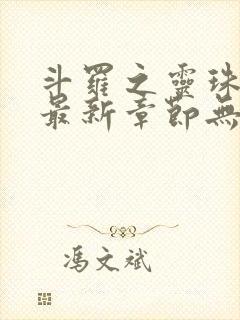 斗羅之靈珠
最新章節無
馮文斌